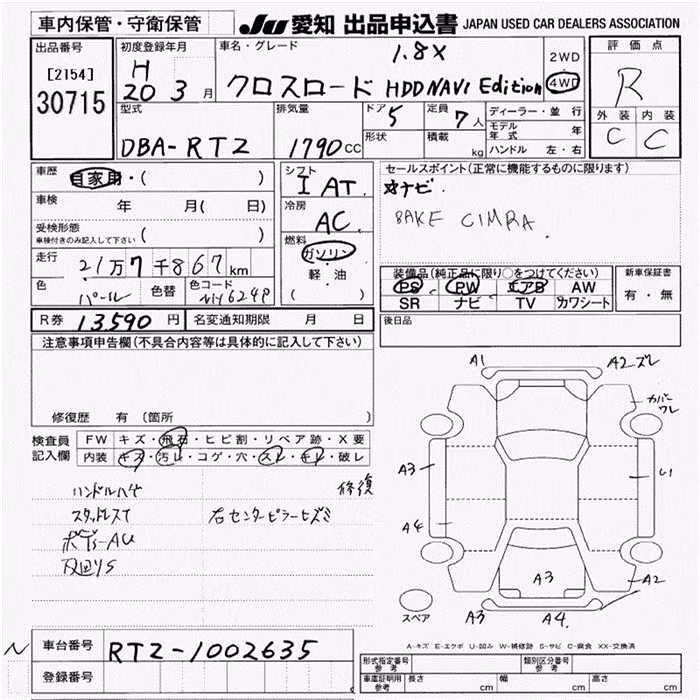 車内保管・守衛保管
JU 愛知 出品申込書 JAPAN USED CAR DEALERS ASSOCIATION
出品番号
[2154]
30715
初度登録年月
H
20 3 月
車名・グレード
1.8X
クロスロード HDDNAVI Edition
2WD
4WD
評価点
R
外装 内装
C C
型式
DBA-RT2
排気量
1790 CC
ドア 5
形状
定員 7人
積載 kg
ディーラー・並行
モデル年式 年
ハンドル 左・右
車歴 自家用・( )
車検 年 月( 日)
受検形態
車検付きのみ記入して下さい ( )
走行 21万7千867km
色 パール 色替 色コード NH624P
シフト
I AT.
冷房
AC.
燃料
ガソリン
軽・油
( )
セールスポイント(正常に機能するものに限ります)
ナビ.
BAKE CIMRA.
装備品(純正品に限り○をつけてください)
PS PW エアB AW
SR ナビ TV カワシート
新車保証書
有・無
R券 13,590 円 名変通知期限 月 日
後日品
注意事項申告欄(不具合内容等は具体的に記入して下さい)
修復歴 有 〔箇所 〕
検査員
記入欄
FW キズ・飛石・ヒビ割・リペア跡・X要
内装 キズ・汚レ・コゲ・穴・スレ・キレ・破レ
ハンドルハゲ 修復
スタッドレスT 右センターピラーヒズミ
ボディーAU
A1 A2 ズレ
カバーワレ
A3
A4
A3
A2
スペア A3 A4.
A-キズ E-エクボ U-凹み W-補修跡 S-サビ C-腐食 XX-交換済
N 車台番号 RT2-1002635
登録番号
形式指定番号 参考 類別区分番号 参考
車庫証明用 参考 長さ cm 幅 cm 高さ cm